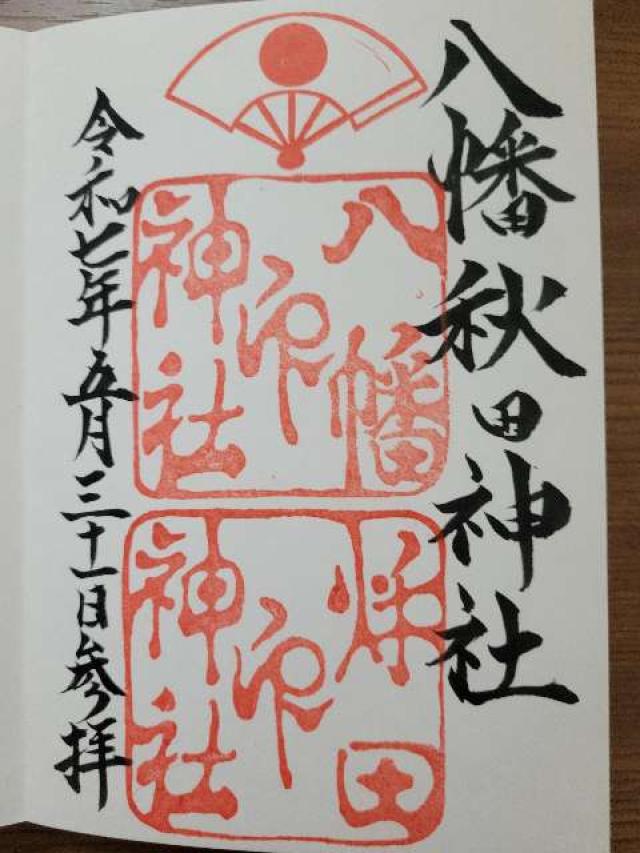 八幡秋田神社
八幡
印
神社
秋田
印
神社
令和七年五月三十一日参拝